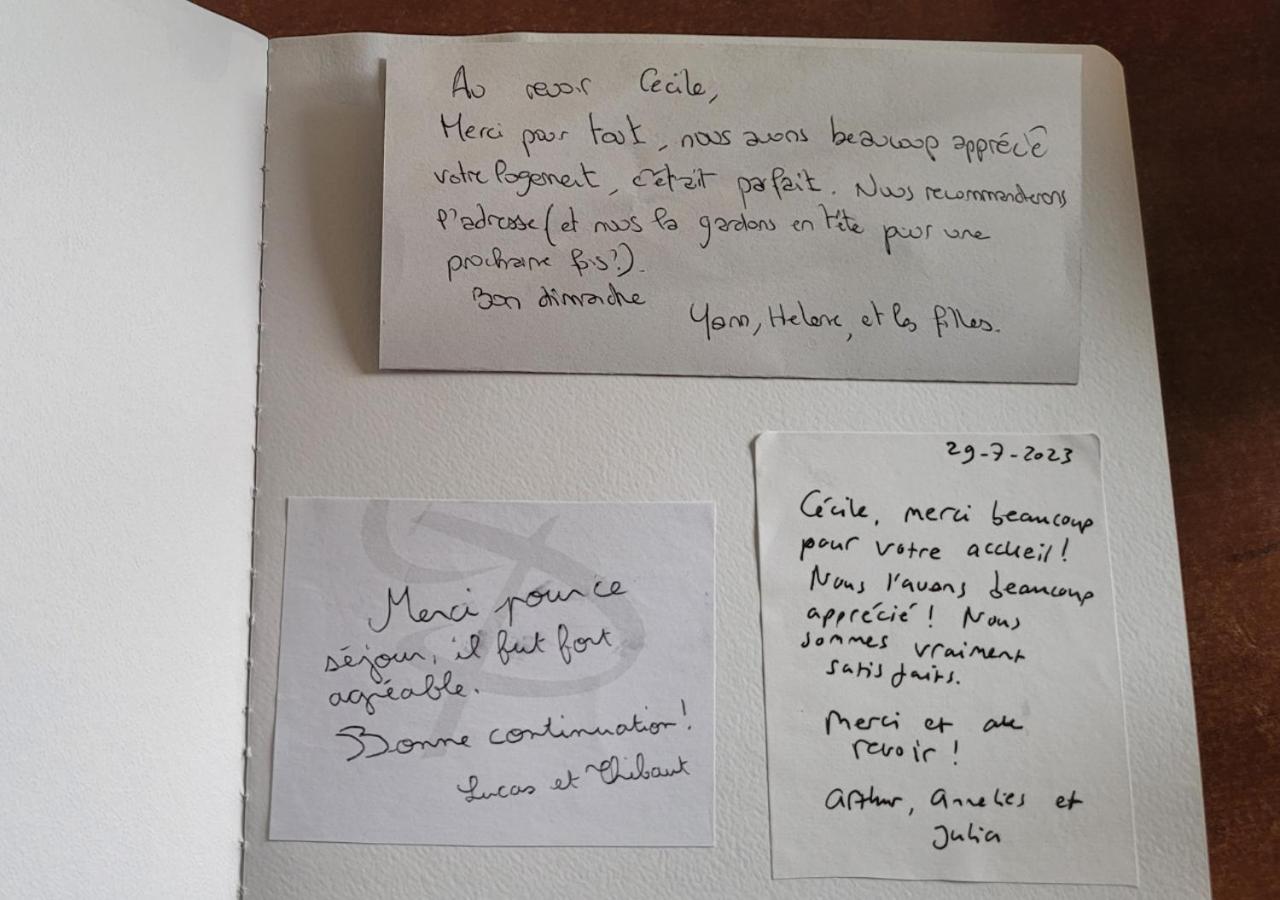 Au revoir Cécile,
Merci pour tout, nous avons beaucoup apprécié
votre logement, c'était parfait. Nous recommanderons
l'adresse (et nous la gardons en tête pour une
prochaine fois?).
Bon dimanche
Yann, Helene, et les filles.
Merci pour ce
séjour, il fut fort
agréable.
Bonne continuation!
Lucas et Thibaut
29-7-2023
Cécile, merci beaucoup
pour votre accueil!
Nous l'avons beaucoup
apprécié! Nous
sommes vraiment
satisfaits.
Merci et au
revoir!
Arthur, Annelies et
Julia